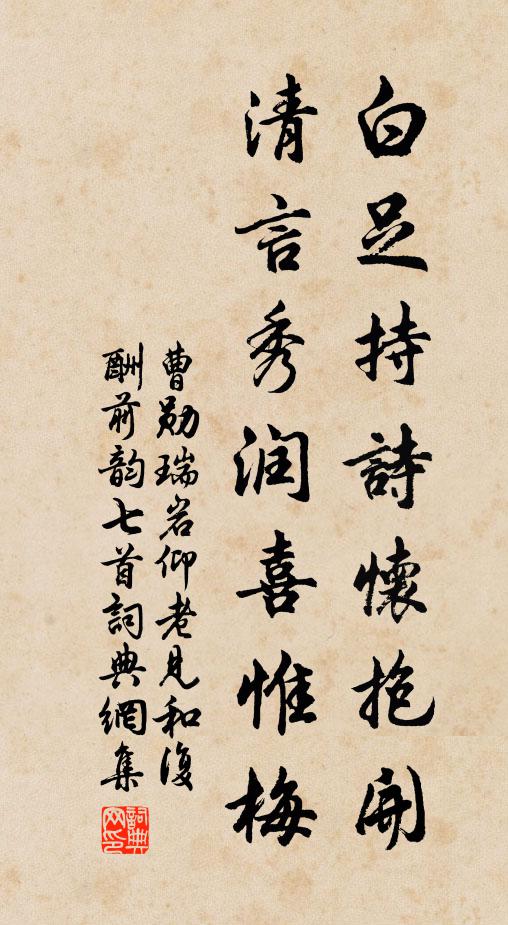 白足持詩懷抱開
清言秀润喜惟梅
曹勛瑞岩仰老見和復
酬前韵七首詞典網集
詞典网印